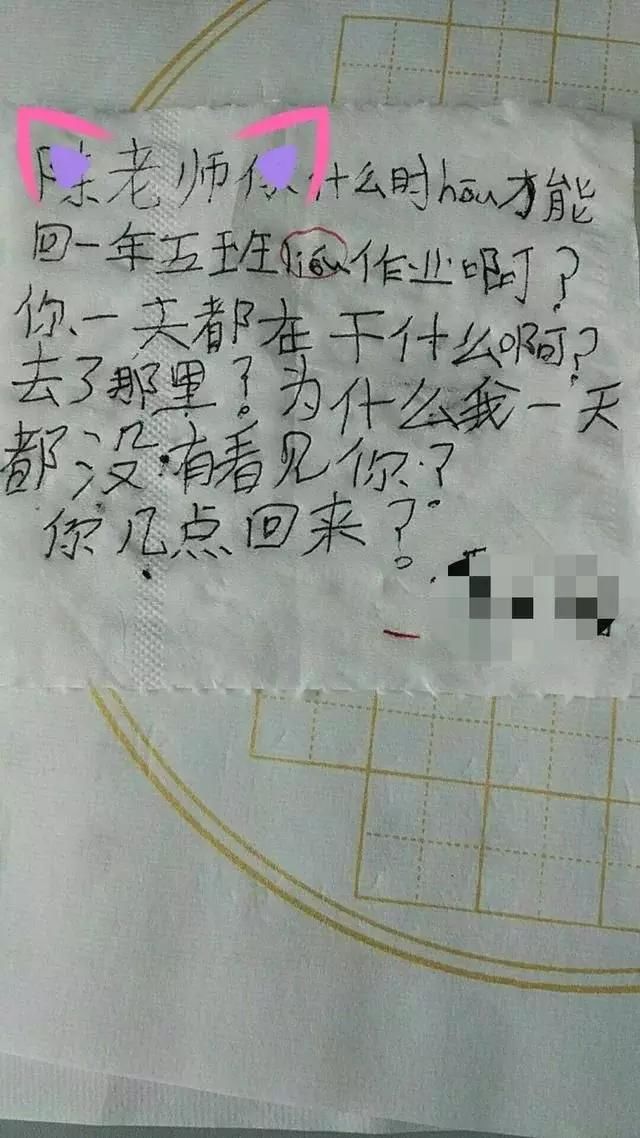 陈老师你什么时hōu才能
回一年五班liǒu作业啊？
你一天都在干什么啊？
去了那里？为什么我一天
都没有看见你？
你几点回来？